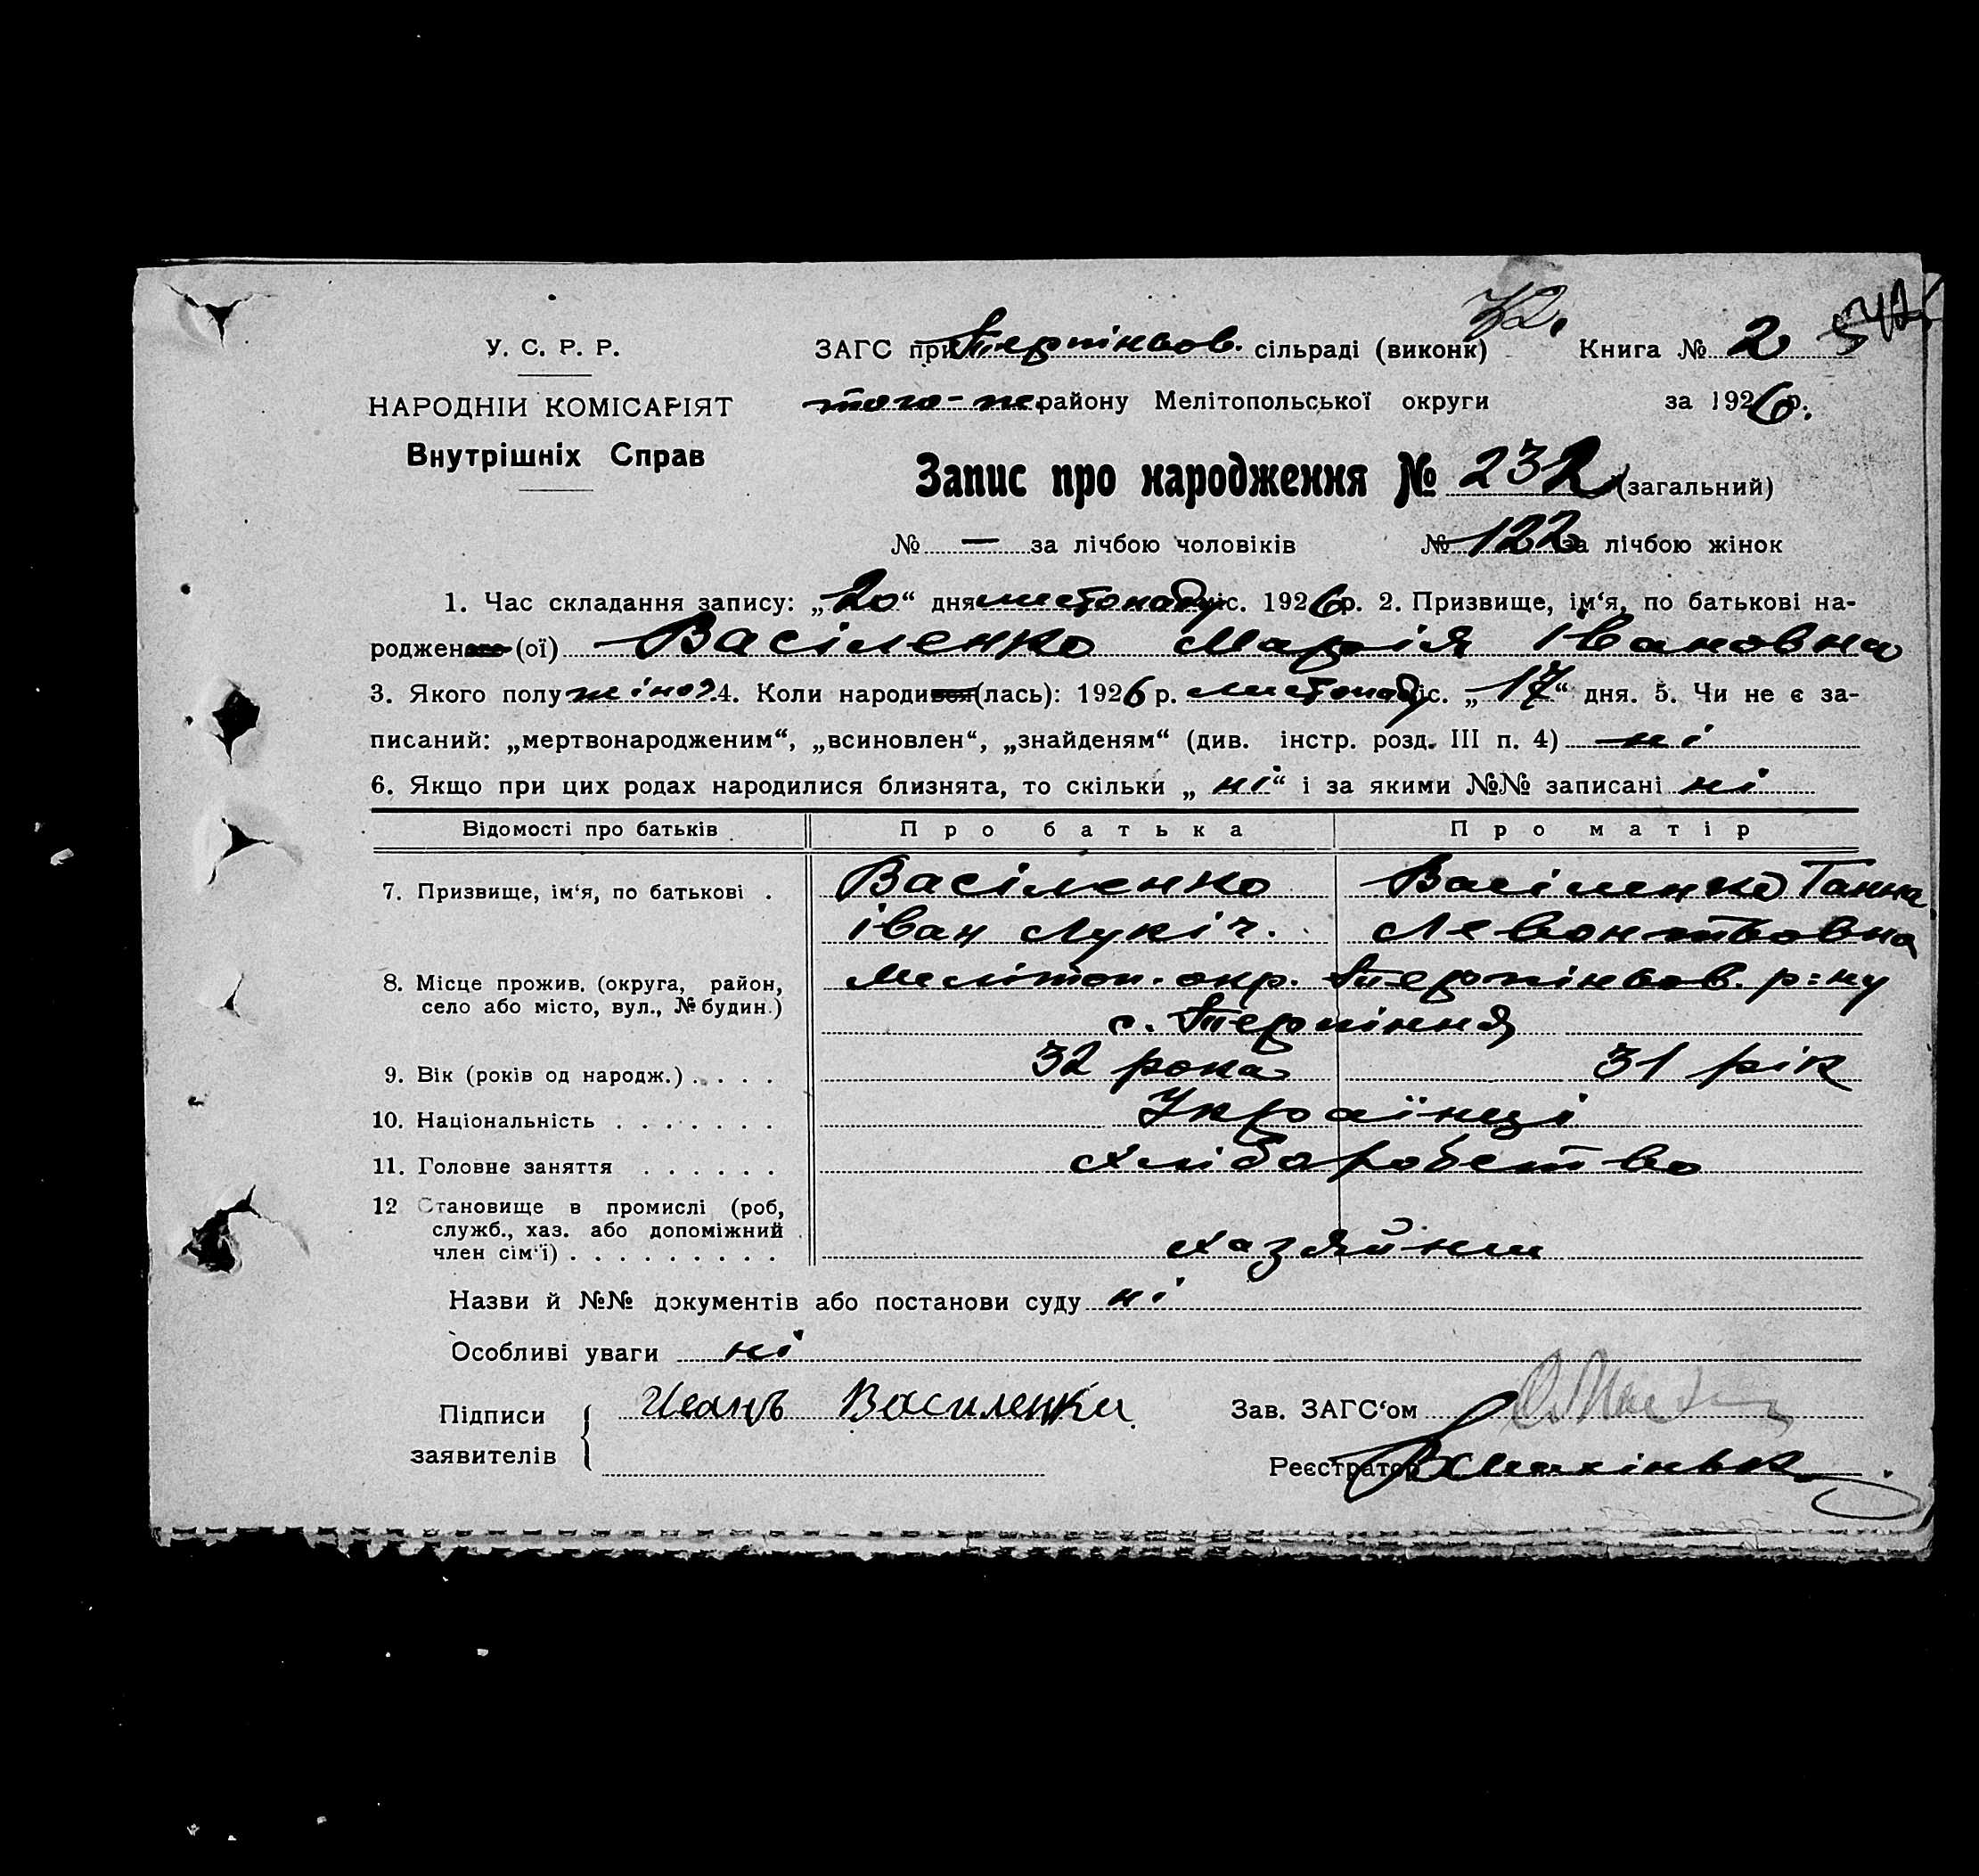 72.
У. С. Р. Р.
ЗАГС при Терпіньов. сільраді (виконк) Книга № 2
НАРОДНІЙ КОМІСАРІЯТ
того-ж району Мелітопольської округи за 1926 р.
Внутрішніх Справ
Запис про народження № 232 (загальний)
№ — за лічбою чоловіків № 122 за лічбою жінок
1. Час складання запису: „20“ дня листопаду міс. 1926 р. 2. Призвище, ім‘я, по батькові на-
родженого (ої) Васіленко Марія Івановна
3. Якого полу жіноч. 4. Коли народився (лась): 1926 р. листопаду міс. „17“ дня. 5. Чи не є за-
писаний: „мертвонародженим“, „всиновлен“, „знайденям“ (див. інстр. розд. III п. 4) ні
6. Якщо при цих родах народилися близнята, то скільки „ні“ і за якими №№ записані ні
Відомості про батьків Про батька Про матір
7. Призвище, ім‘я, по батькові . Васіленко Васіленко Ганна
іван Лукіч. Левонтьовна
8. Місце прожив. (округа, район, Меліттоп. окр. Терпіньов. р=ну
село або місто, вул., № будин.)
с. Терпіння
9. Вік (років од народж.) . . . . 32 рока 31 рік
10. Національність . . . . . . . Українці
11. Головне заняття . . . . . . Хліборобство
12 Становище в промислі (роб,
служб., хаз. або допоміжний
член сім‘ї) . . . . . . . . . хазяйни
Назви й №№ документів або постанови суду ні
Особливі уваги ні
Підписи заявителів Иванъ Василенко
Зав. ЗАГС‘ом
Реєстратор